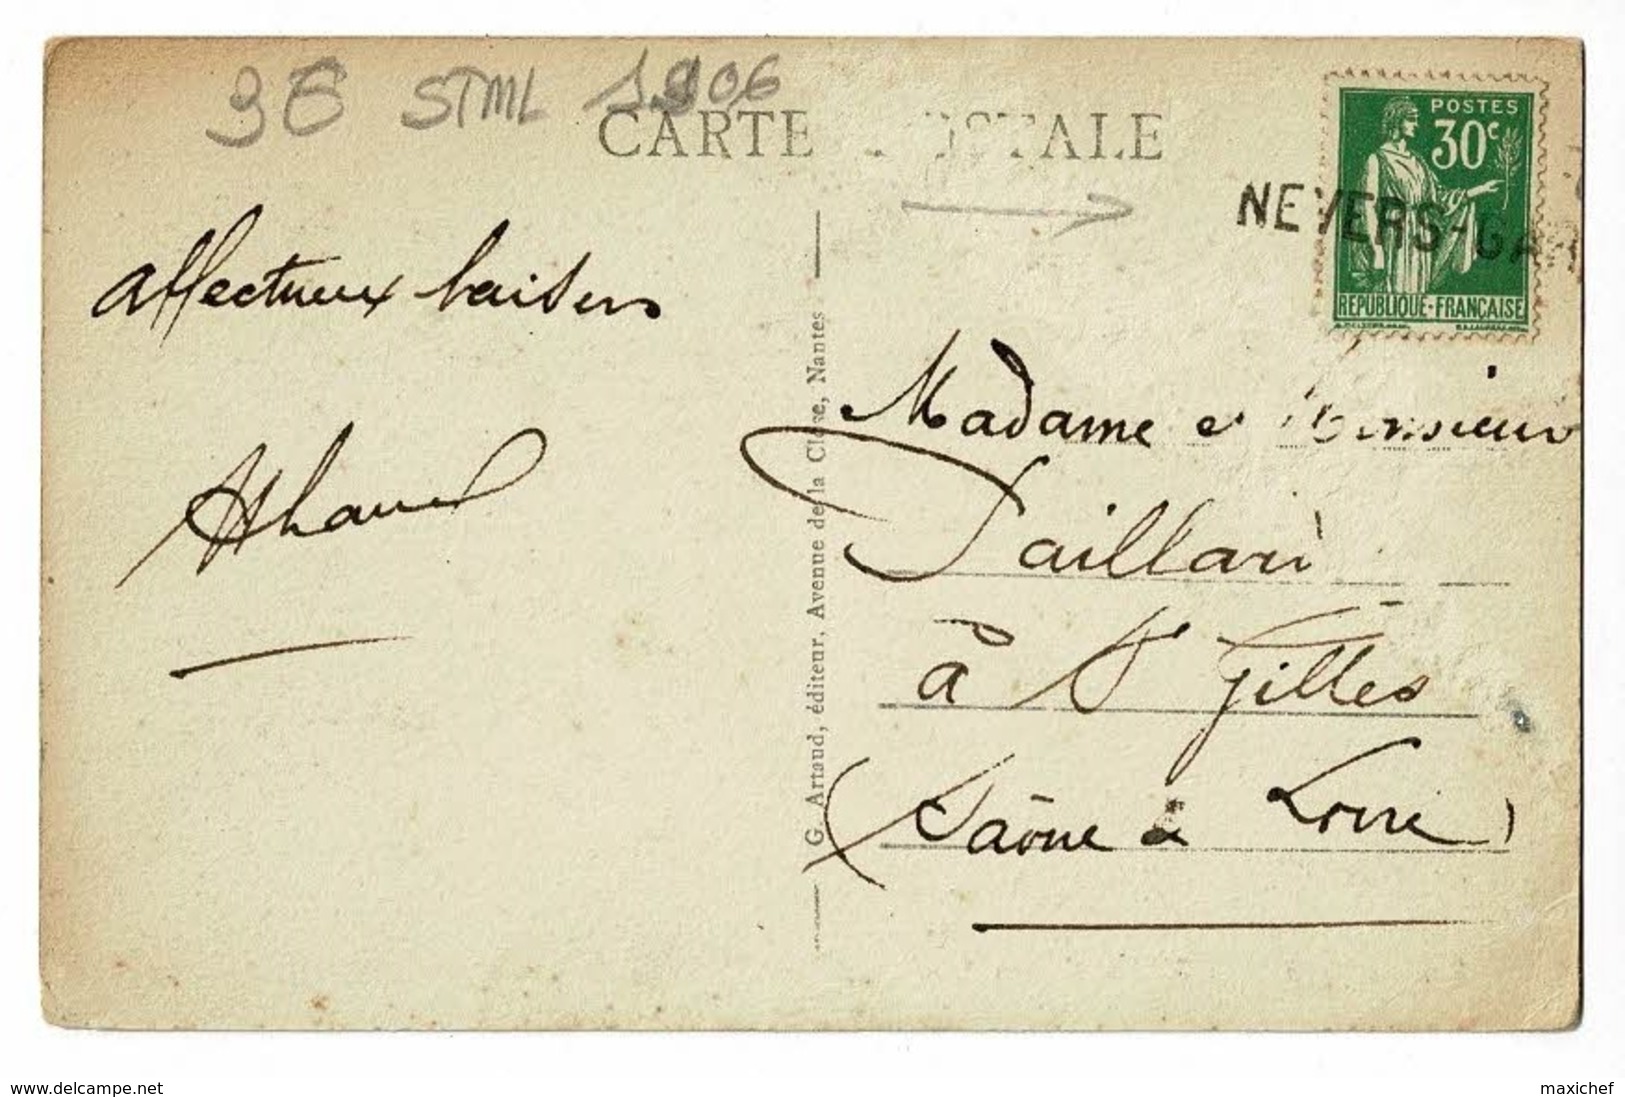 3€ STML 1906
CARTE POSTALE
POSTES
30c
NEVERS-GA
REPUBLIQUE-FRANÇAISE
affectueux baisers
Madame et Monsieur
Paillard
à St Gilles
(Saône & Loire)
G. Artaud, éditeur, Avenue de la Close, Nantes
www.delcampe.net
maxichef